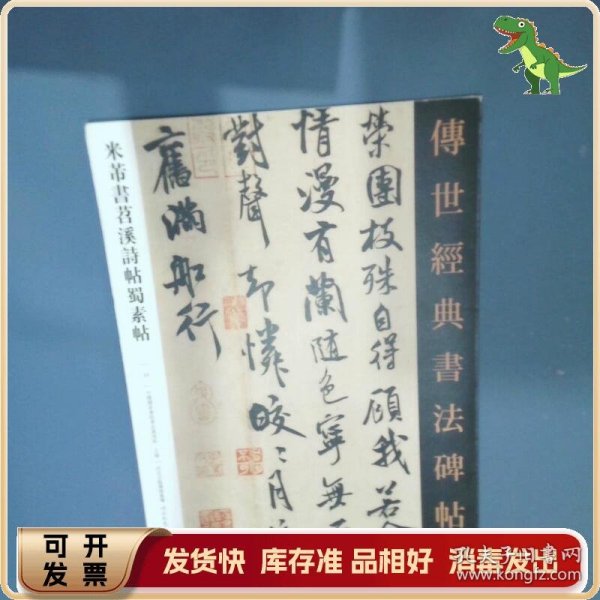 傳世經典書法碑帖
米芾書苕溪詩帖蜀素帖
榮團枝殊自得顧我若
情漫有蘭隨色寧無
對聲却憐皎〻月
舊滿船行
可开发票
发货快 库存准 品相好 消毒发出
孔夫子旧书网
www.kongfz.com